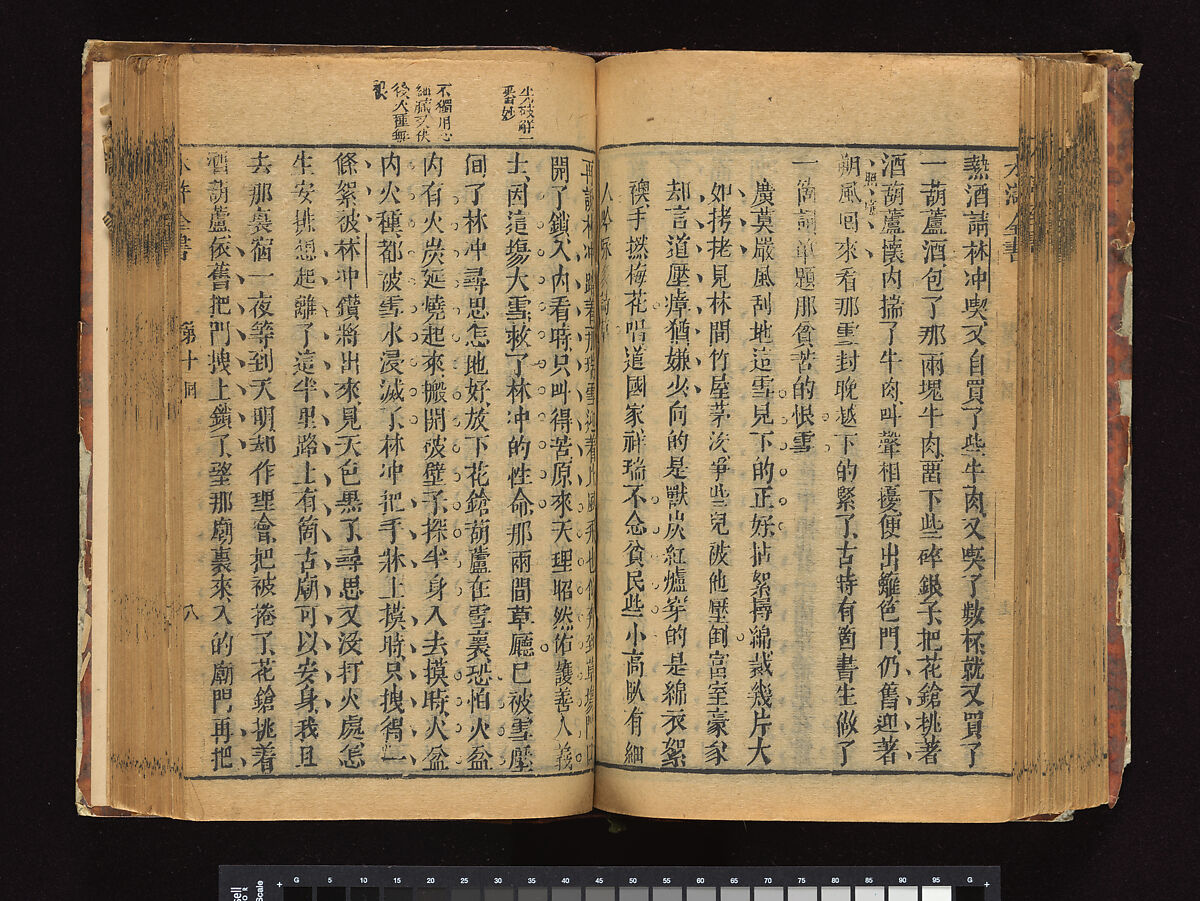 水滸全書
熱酒請林冲喫又自買了些牛肉又喫了數杯就又買了
一葫蘆酒包了那兩塊牛肉留下些碎銀子把花鎗挑著
酒葫蘆懷内揣了牛肉叫聲相擾便出籬色門仍舊迎著
朔風囘來看那雪到晚越下的緊了古時有箇書生做了
一箇詞單題那貧苦的恨雪
廣莫嚴風刮地這雪兒下的正好拈絮撏綿裁幾片大
如栲栳見林間竹屋茅茨爭些兒被他壓倒富室豪家
却言道壓瘴猶嫌少向的是獸炭紅爐穿的是綿衣絮
襖手撚梅花唱道國家祥瑞不念貧民些小高臥有細
再説林冲踏着那瑞雪迎着
開了鎖入内看時只叫得苦原來天理昭然佑護善人義
士因這塲大雪救了林冲的性命那兩間草廳已被雪壓
倒了林冲尋思怎地好放下花鎗葫蘆在雪裏恐怕火盆
内有火炭延燒起來搬開破壁子探半身入去摸時火盆
内火種都被雪水浸滅了林冲把手牀上摸時只拽得一
條絮被林冲鑽將出來見天色黑了尋思又沒打火處怎
生安排想起離了這半里路上有箇古廟可以安身我且
去那裏宿一夜等到天明却作理會把被捲了花鎗挑着
酒葫蘆依舊把門拽上鎖了望那廟裏來入的廟門再把
不獨用心
細膩又伏
後火種無
水滸全書
第十囘
八
G 5 10 15 20 25 30 35 40 45 50 55 60 65 70 75 80 85 90 95 G
Scale